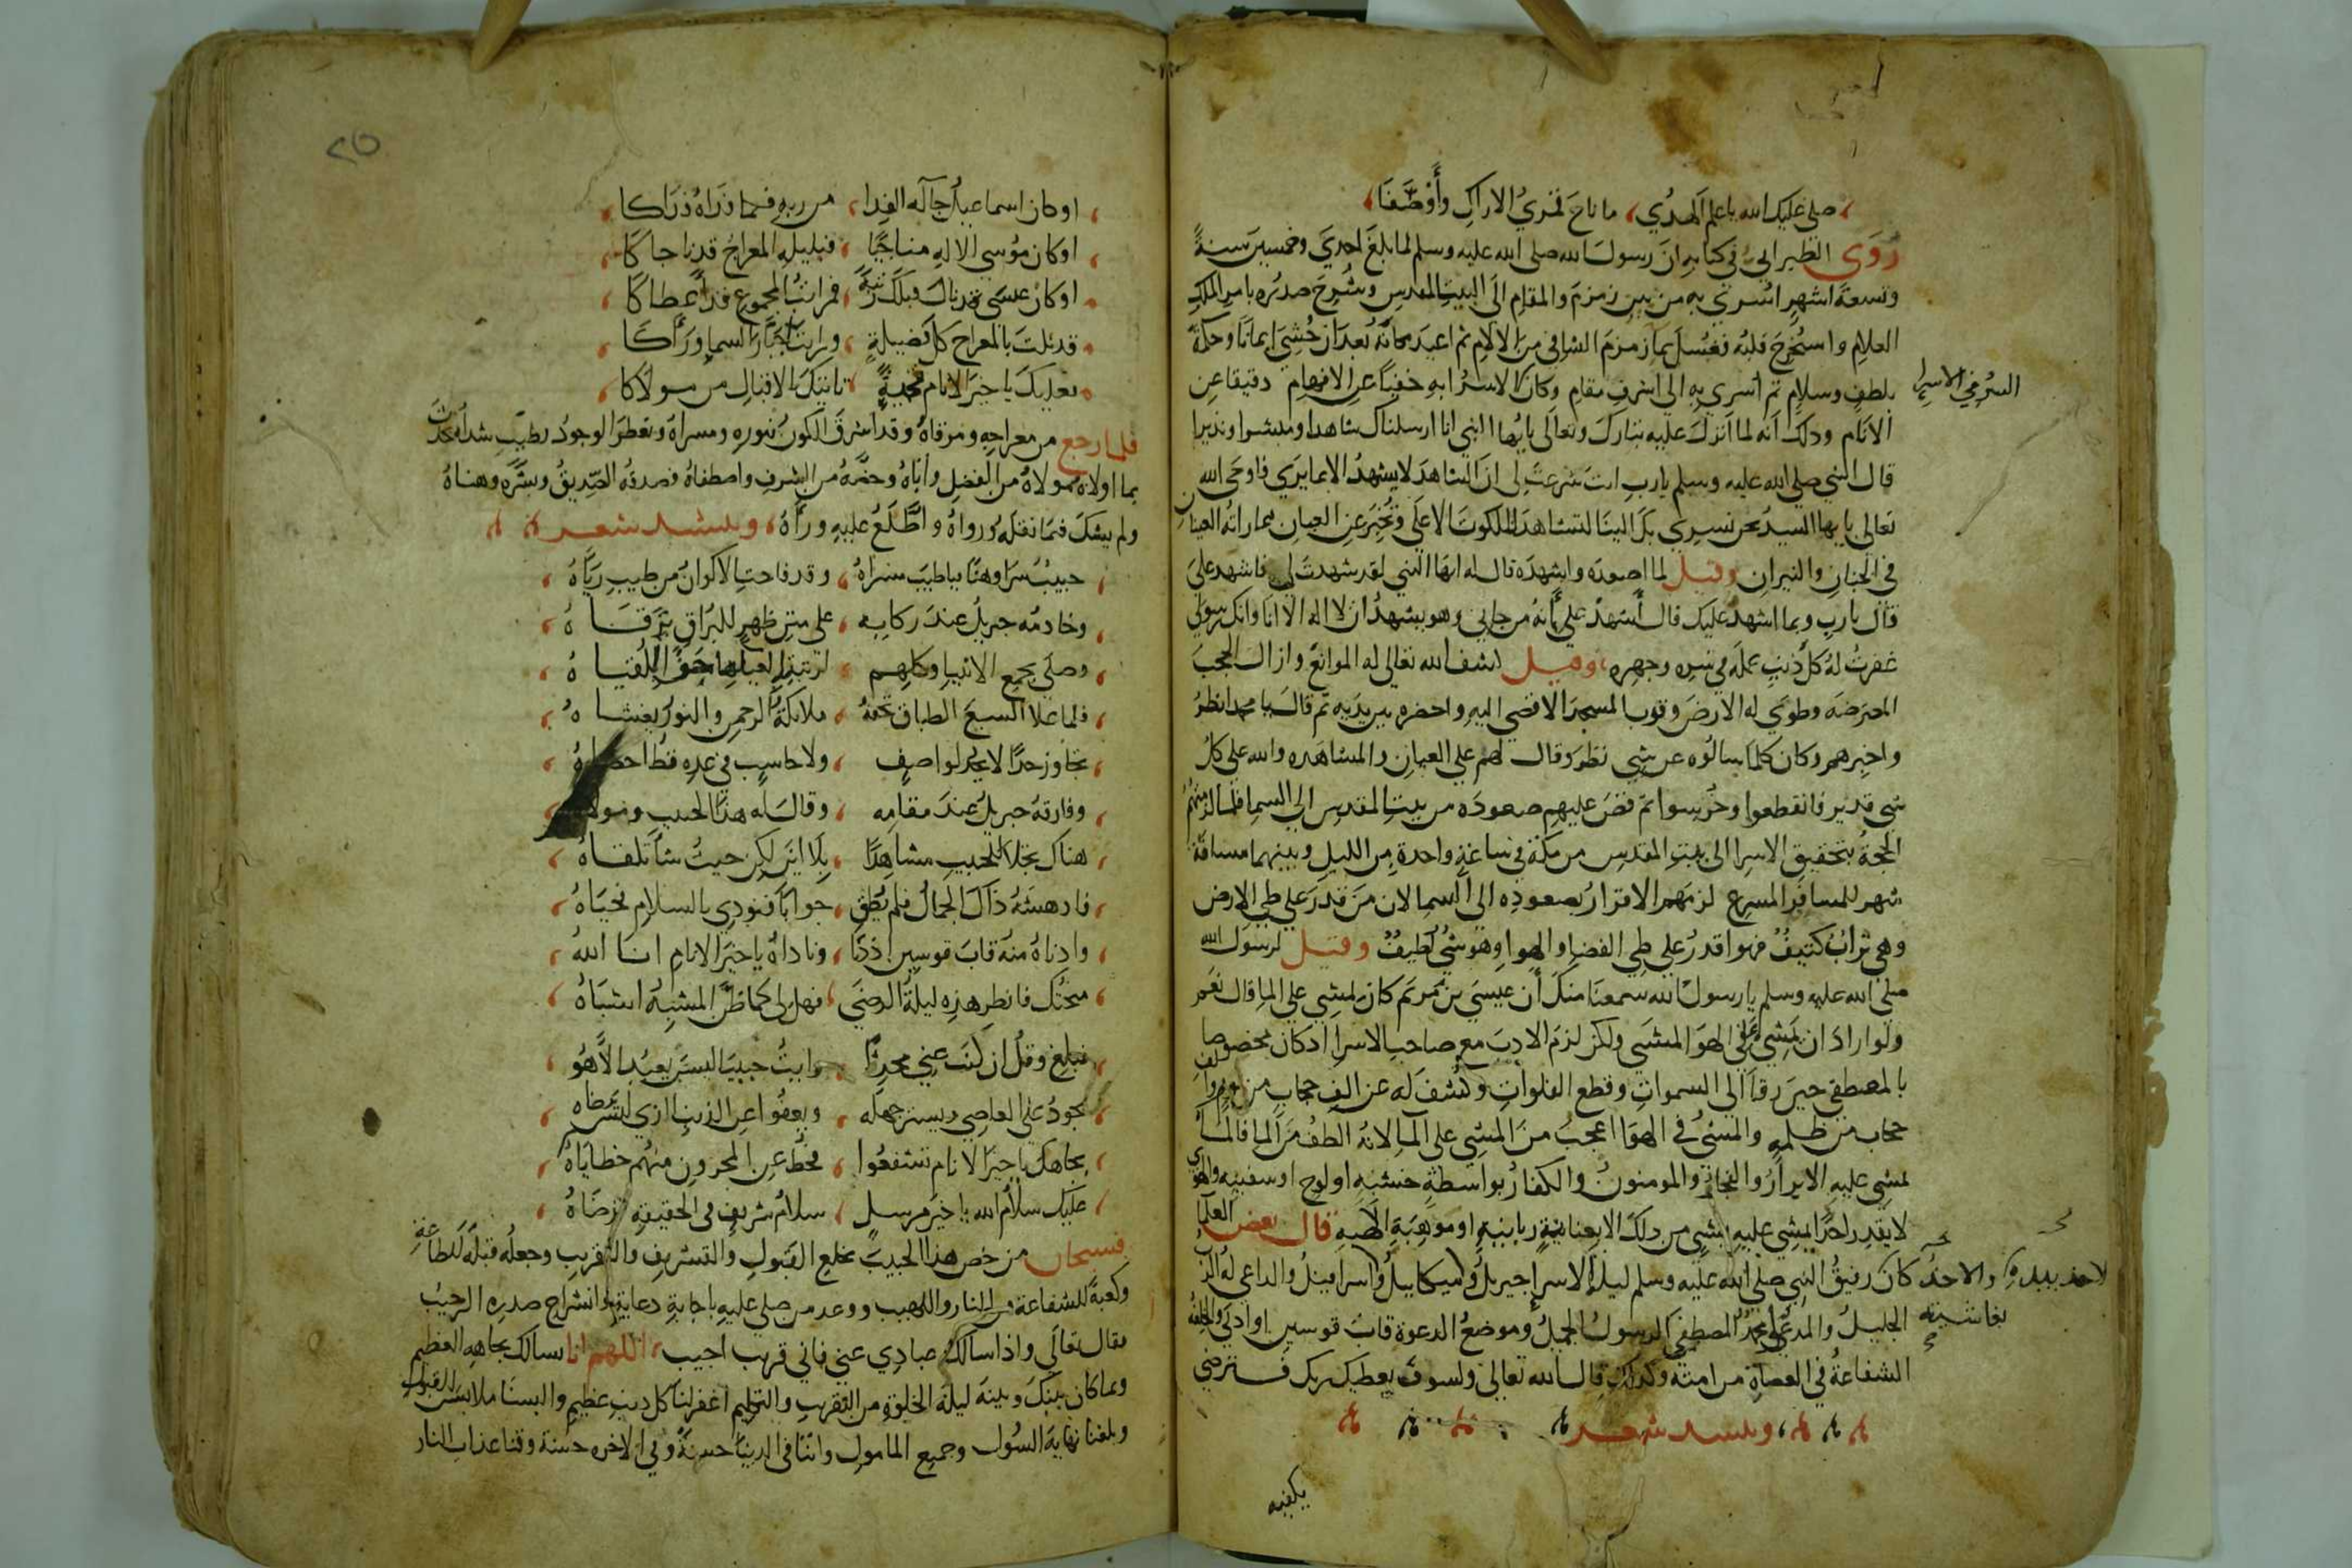 صلى عليك الله يا علم الهدى ما ناح قمري الاراك وأوظفا
روى الطبراني في كتابه ان رسول الله صلى الله عليه وسلم لما بلغ احدي وخمسين سنة
وتسعة اشهر اسري به من بين زمزم والمقام الى البيت المقدس وشرح صدره بامر الملك
العلام واستخرج قلبه فغسل بماء زمزم الشافي من الالام ثم اعيد مكانه بعد ان حشي ايمانا وحكمة
بلطف وسلام ثم أسري به الى اشرف مقام وكان الاسرا به خفيا عن الافهام دقيقا عن
السر في الاسرا
الانام وذلك انه لما انزل عليه تبارك وتعالى يايها النبي انا ارسلناك شاهدا ومبشرا ونذيرا
قال النبي صلى الله عليه وسلم يارب انت شرعت لي ان الشاهد لا يشهد الا بما يرى فاوحى الله
تعالى يا يها السيد نحن نسري بك الينا لتشاهد الملكوت الاعلى وتخبر عن العيان بما راته العينان
في الجنان والنيران وقيل لما اصعده واشهده قال له ايها النبي لقد شهدت لي فاشهد على
قال يارب وبما اشهد عليك قال أشهد علي بأنه من جاني وهو يشهد ان لا اله الا انا وانك رسولي
غفرت له كل ذنب عمله في سره وجهره وقيل كشف الله تعالى له الموانع وازال الحجب
المعترضة وطوي له الارض وقرب المسجد الاقصي اليه واحضره بين يديه ثم قال يا محمد انظر
واخبرهم وكان كلما سالوه عن شي نظر وقال لهم على العيان والمشاهده والله على كل
شي قدير فانقطعوا وخرسوا ثم قص عليهم صعوده من بيت المقدس الى السما فلما لزمتهم
الحجة بتحقيق الاسرا الى بيت المقدس من مكة في ساعة واحدة من الليل وبينهما مسافة
شهر للمسافر المسرع لزمهم الاقرار بصعوده الى السما لان من قدر على طي الارض
وهي تراب كثيف فهو اقدر على طي الفضا والهوا وهو شي لطيف وقيل لرسول الله
صلى الله عليه وسلم يا رسول الله سمعنا منك أن عيسى بن مريم كان يمشي على الما قال نعم
ولو اراد ان يمشي على الهوا لمشى ولكن لزم الادب مع صاحب الاسرا اذ كان مخصوصا
بالمصطفى حين رقا الى السموات وقطع الفلوات وكشف له عن الف حجاب من نور والف
حجاب من ظلمه والمشي في الهوا اعجب من المشي على الما لانه الطف من الما فالما
يمشي عليه الابرار والفجار والمومنون والكفار بواسطة خشبة او لوح او سفينه والهوى
لا يقدر احد يمشي عليه بشي من ذلك الا بعناية ربانية او موهبة الهيه قال بعض العلما
كان رفيق النبي صلى الله عليه وسلم ليلة الاسرا جبريل وميكاييل واسرافيل والداعي له الرب
الجليل والمدعو محمد المصطفى الرسول الجميل وموضع الدعوة قاب قوسين او ادنى والخلعة
الشفاعة في العصاة من امته وكذلك قال الله تعالى ولسوف يعطيك ربك فترضى
وينشد شعر
يكفيه
٢٥
او كان اسماعيل جآله الفدا من ربه فيما ذراه ذراكا
او كان موسى الاله مناجيا فبليله المعراج قد ناجاكا
او كان عيسى قد نال قبلك رتبة فمراتب المجموع قد أعطاكا
قد نلت بالمعراج كل فضيلة ورايت جبار السما ورأكا
يعليك يا خير الانام تحية تاتيك بالاقبال من مولاكا
فلما رجع من معراجه ومرقاه وقد اشرق الكون بنوره ومسراه وتعطر الوجود بطيب شداه تحدث
بما اولاه مولاه من الفضل وأناه وخصه من الشرف واصطفاه فصدقه الصديق وبشره وهناه
ولم يشك فيما نقله ورواه واطلع عليه ورآه وينشد شعر
حبيب سرا وهنا فيا طيب مسراه وقد فاحت الاكوان من طيب رياه
وخادمه جبريل عند ركابه على متن ظهر للبراق ترقاه
وصلى بجمع الانبيا وكلهم
فلما علا السبع الطباق تحفه ملايكة الرحمن والنور يغشاه
تجاوز حدا لا يحد لواصف ولا حاسب في عده قط احصاه
وفارقه جبريل عند مقامه وقال له هذا الحبيب ومولاه
هناك تجلا للحبيب مشاهدا بلا اين لكن حيث شا تلقاه
فادهشه ذاك الجمال فلم يطق جوابا فنودي بالسلام فحياه
وادناه منه قاب قوسين اذ دنا وناداه يا خير الانام انا الله
منحتك فانظر هذه ليلة الرضى فهل لي كما ظن المشبه اشباه
فبلغ وقل ان كنت عني محدثا رايت حبيبا ليس يعبد الا هو
يجود على العاصي ويستر جهله ويعفوا عن الذنب الذي ليس يرضاه
بجاهك يا خير الانام تشفعوا فحط عن المحرون منهم خطاياه
عليك سلام الله يا خير مرسل سلام شريف في الحقيقة ترضاه
فسبحان من خص هذا الحبيب بخلع القبول والتشريف والتقريب وجعله قبلة للطاعة
وكعبة للشفاعة من النار واللهيب ووعد من صلى عليه باجابة دعايه وانشراح صدره الرحيب
فقال تعالى واذا سالك عبادي عني فاني قريب اجيب اللهم انا نسالك بجاهه العظيم
وبما كان بينك وبينه ليلة الخلوة من التقريب والتكليم اغفر لنا كل ذنب عظيم والبسنا ملابس القبول
وبلغنا نهاية السول وجميع المامول واتنا في الدنيا حسنة وفي الاخره حسنة وقنا عذاب النار